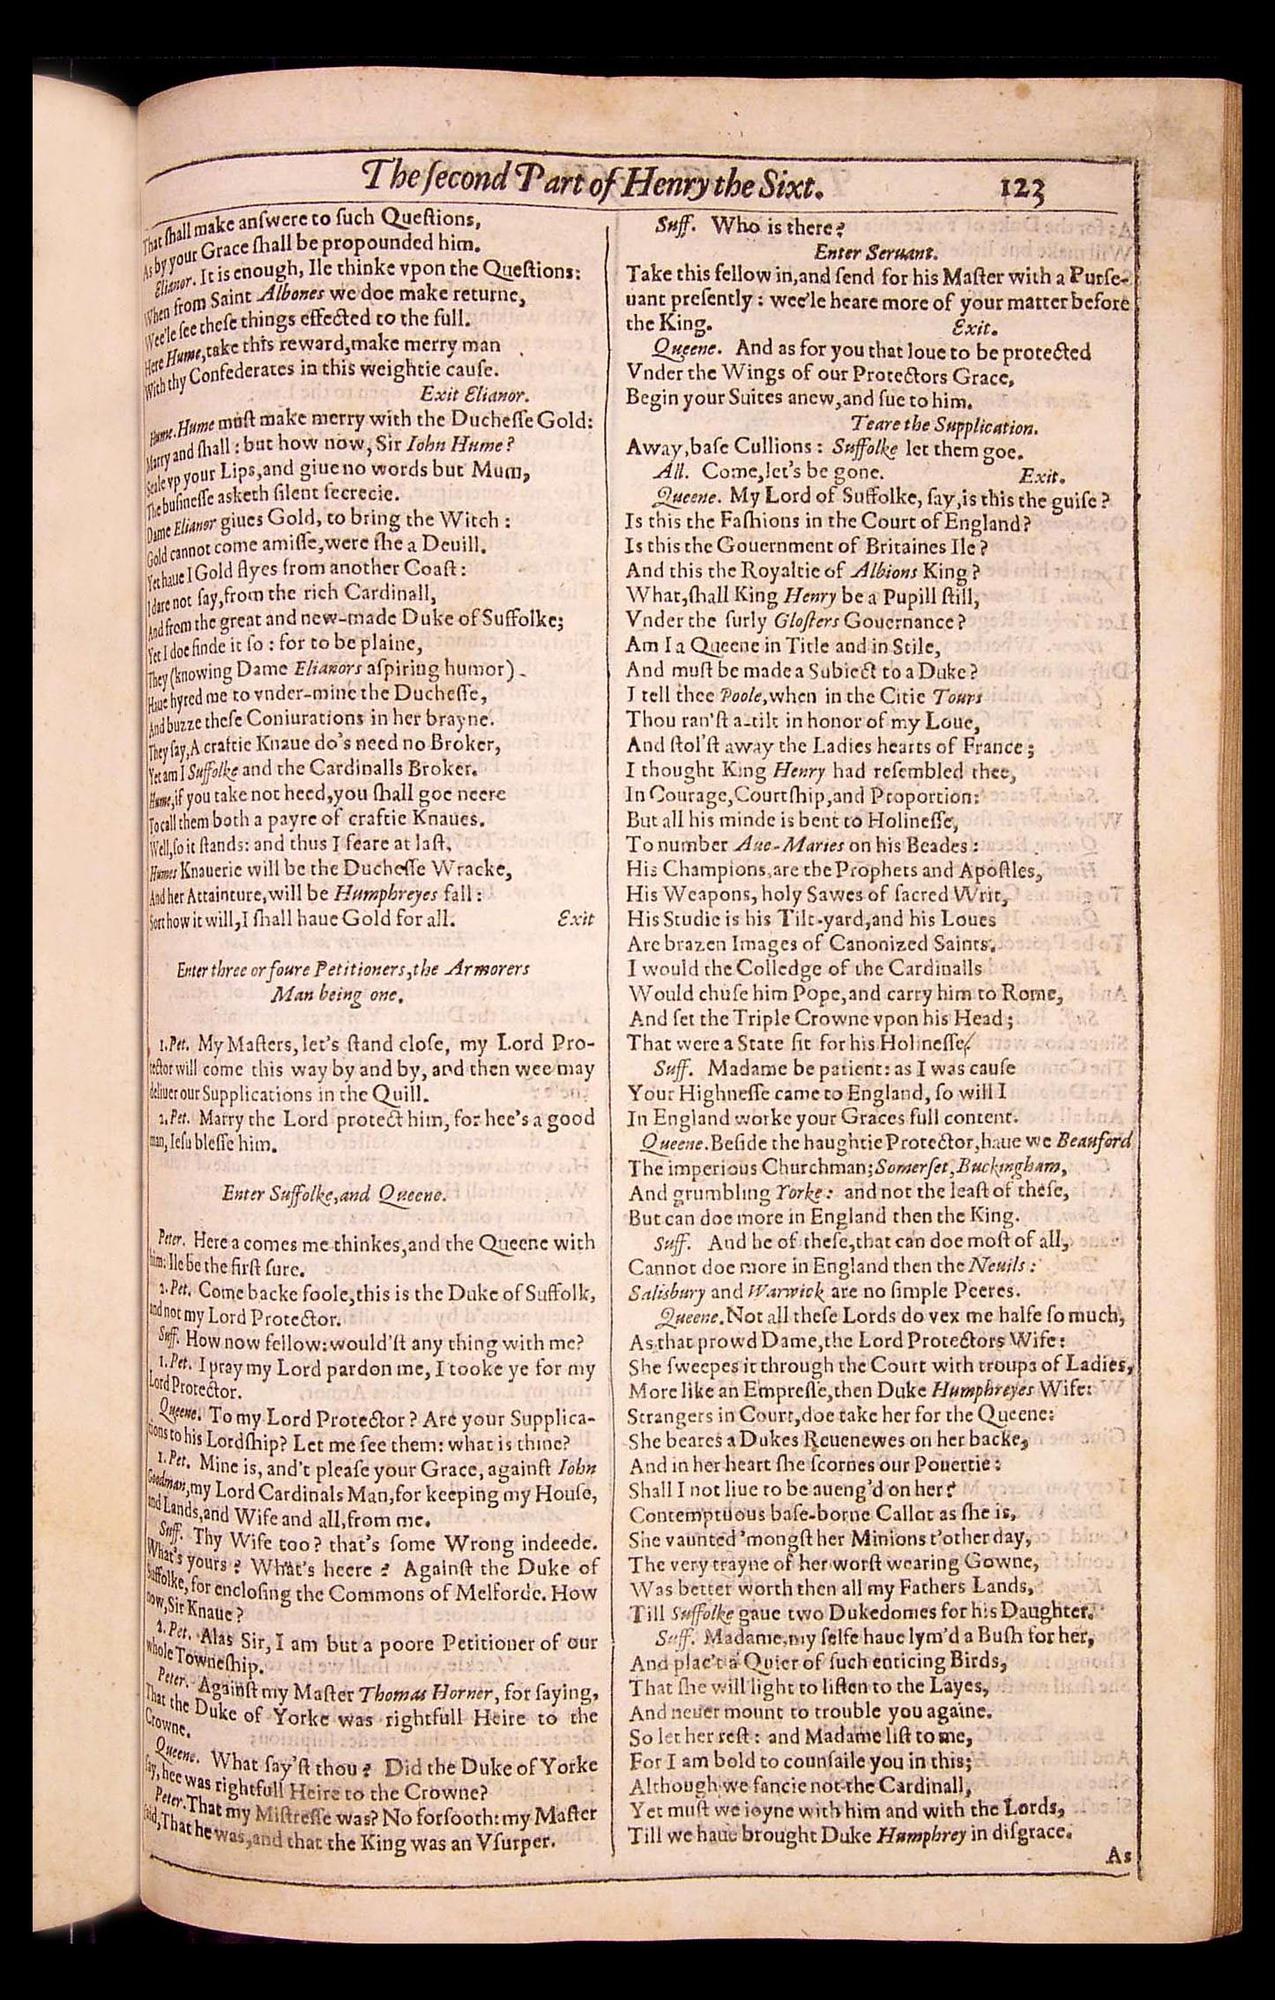 The ſecond Part of Henry the Sixt. 123
That ſhall make anſwere to ſuch Queſtions,
As by your Grace ſhall be propounded him.
Elianor. It is enough, Ile thinke vpon the Queſtions:
When from Saint Albones we doe make returne,
Wee'le ſee theſe things effected to the full.
Here Hume, take this reward, make merry man
With thy Confederates in this weightie cauſe.
Exit Elianor.
Hume. Hume muſt make merry with the Ducheſſe Gold:
Marry and ſhall: but how now, Sir Iohn Hume?
Seale vp your Lips, and giue no words but Mum,
The buſineſſe asketh ſilent ſecrecie.
Dame Elianor giues Gold, to bring the Witch:
Gold cannot come amiſſe, were ſhe a Deuill.
Yet haue I Gold flyes from another Coaſt:
I dare not ſay, from the rich Cardinall,
And from the great and new-made Duke of Suffolke;
Yet I doe finde it ſo: for to be plaine,
They (knowing Dame Elianors aſpiring humor)
Haue hyred me to vnder-mine the Ducheſſe,
And buzze theſe Coniurations in her brayne.
They ſay, A craftie Knaue do's need no Broker,
Yet am I Suffolke and the Cardinalls Broker.
Hume, if you take not heed, you ſhall goe neere
To call them both a payre of craftie Knaues.
Well, ſo it ſtands: and thus I feare at laſt,
Humes Knauerie will be the Ducheſſe Wracke,
And her Attainture, will be Humphreyes fall:
Sort how it will, I ſhall haue Gold for all. Exit
Enter three or foure Petitioners, the Armorers
Man being one.
1. Pet. My Maſters, let's ſtand cloſe, my Lord Pro-
tector will come this way by and by, and then wee may
deliuer our Supplications in the Quill.
2. Pet. Marry the Lord protect him, for hee's a good
man, Ieſu bleſſe him.
Enter Suffolke, and Queene.
Peter. Here a comes me thinkes, and the Queene with
him: Ile be the firſt ſure.
2. Pet. Come backe foole, this is the Duke of Suffolk,
and not my Lord Protector.
Suff. How now fellow: would'ſt any thing with me?
1. Pet. I pray my Lord pardon me, I tooke ye for my
Lord Protector.
Queene. To my Lord Protector? Are your Supplica-
tions to his Lordſhip? Let me ſee them: what is thine?
1. Pet. Mine is, and't pleaſe your Grace, againſt Iohn
Goodman, my Lord Cardinals Man, for keeping my Houſe,
and Lands, and Wife and all, from me.
Suff. Thy Wife too? that's ſome Wrong indeede.
What's yours? What's heere? Againſt the Duke of
Suffolke, for encloſing the Commons of Melforde. How
now, Sir Knaue?
2. Pet. Alas Sir, I am but a poore Petitioner of our
whole Towneſhip.
Peter. Againſt my Maſter Thomas Horner, for ſaying,
That the Duke of Yorke was rightfull Heire to the
Crowne.
Queene. What ſay'ſt thou? Did the Duke of Yorke
ſay, hee was rightfull Heire to the Crowne?
Peter. That my Miſtreſſe was? No forſooth: my Maſter
ſaid, That he was, and that the King was an Vſurper.
Suff. Who is there?
Enter Seruant.
Take this fellow in, and ſend for his Maſter with a Purſe-
uant preſently: wee'le heare more of your matter before
the King. Exit.
Queene. And as for you that loue to be protected
Vnder the Wings of our Protectors Grace,
Begin your Suites anew, and ſue to him.
Teare the Supplication.
Away, baſe Cullions: Suffolke let them goe.
All. Come, let's be gone. Exit.
Queene. My Lord of Suffolke, ſay, is this the guiſe?
Is this the Faſhions in the Court of England?
Is this the Gouernment of Britaines Ile?
And this the Royaltie of Albions King?
What, ſhall King Henry be a Pupill ſtill,
Vnder the ſurly Gloſters Gouernance?
Am I a Queene in Title and in Stile,
And muſt be made a Subiect to a Duke?
I tell thee Poole, when in the Citie Tours
Thou ran'ſt a-tilt in honor of my Loue,
And ſtol'ſt away the Ladies hearts of France;
I thought King Henry had reſembled thee,
In Courage, Courtſhip, and Proportion:
But all his minde is bent to Holineſſe,
To number Aue-Maries on his Beades:
His Champions, are the Prophets and Apoſtles,
His Weapons, holy Sawes of ſacred Writ,
His Studie is his Tilt-yard, and his Loues
Are brazen Images of Canonized Saints.
I would the Colledge of the Cardinalls
Would chuſe him Pope, and carry him to Rome,
And ſet the Triple Crowne vpon his Head;
That were a State fit for his Holineſſe.
Suff. Madame be patient: as I was cauſe
Your Highneſſe came to England, ſo will I
In England worke your Graces full content.
Queene. Beſide the haughtie Protector, haue we Beauford
The imperious Churchman; Somerſet, Buckingham,
And grumbling Yorke: and not the leaſt of theſe,
But can doe more in England then the King.
Suff. And he of theſe, that can doe moſt of all,
Cannot doe more in England then the Neuils:
Salisbury and Warwick are no ſimple Peeres.
Queene. Not all theſe Lords do vex me halfe ſo much,
As that prowd Dame, the Lord Protectors Wife:
She ſweepes it through the Court with troups of Ladies,
More like an Empreſſe, then Duke Humphreyes Wife:
Strangers in Court, doe take her for the Queene:
She beares a Dukes Reuenewes on her backe,
And in her heart ſhe ſcornes our Pouertie:
Shall I not liue to be aueng'd on her?
Contemptuous baſe-borne Callot as ſhe is,
She vaunted 'mongſt her Minions t'other day,
The very trayne of her worſt wearing Gowne,
Was better worth then all my Fathers Lands,
Till Suffolke gaue two Dukedomes for his Daughter.
Suff. Madame, my ſelfe haue lym'd a Buſh for her,
And plac't a Quier of ſuch enticing Birds,
That ſhe will light to liſten to the Layes,
And neuer mount to trouble you againe.
So let her reſt: and Madame liſt to me,
For I am bold to counſaile you in this;
Although we fancie not the Cardinall,
Yet muſt we ioyne with him and with the Lords,
Till we haue brought Duke Humphrey in diſgrace.
As